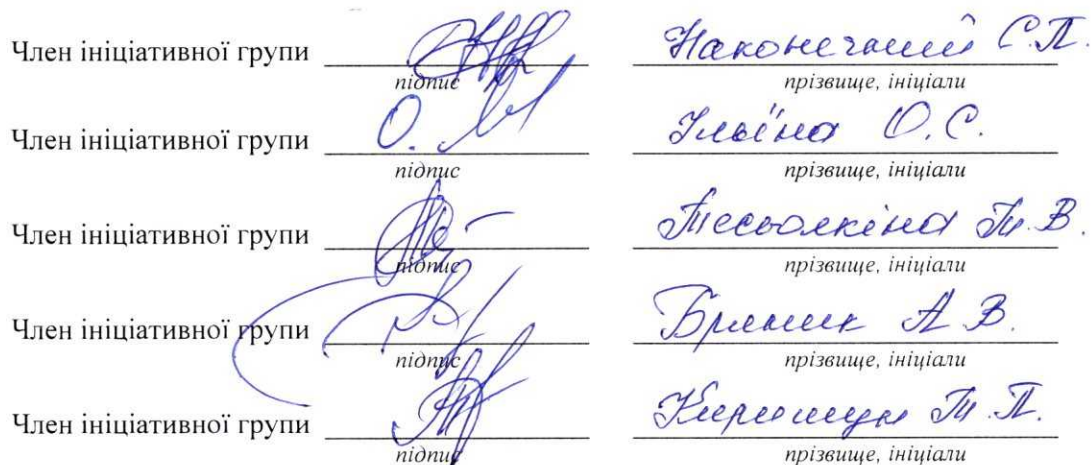 Член ініціативної групи Наконечний С.П.
підпис прізвище, ініціали
Член ініціативної групи О. Ільїна О.С.
підпис прізвище, ініціали
Член ініціативної групи Т.В.
підпис прізвище, ініціали
Член ініціативної групи А.В.
підпис прізвище, ініціали
Член ініціативної групи Т.П.
підпис прізвище, ініціали